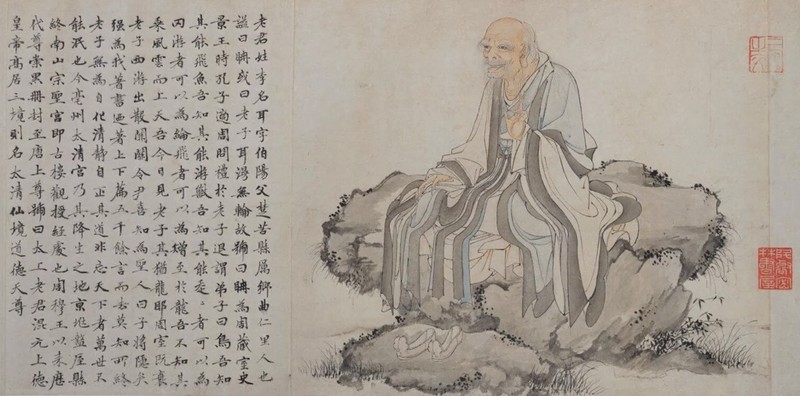 老君姓李名耳字伯陽父楚苦縣厲鄉曲仁里人也
諡曰聃或曰老子耳漫無輪故號曰聃為周藏室史
景王時孔子適周問禮於老子退謂弟子曰鳥吾知
其能飛魚吾知其能游獸吾知其能走〻者可以為
罔游者可以為綸飛者可以為矰至於龍吾不知其
乘風雲而上天吾今日見老子其猶龍耶周室既衰
老子西游出散關關令尹喜知為聖人曰子將隱矣
强為我著書迺著上下篇五千餘言而去莫知所終
老子無為自化清靜自正其道非忘天下者萬世不
能泯也今亳州太清宮乃其降生之地京兆盩厔縣
終南山宗聖宮即古樓觀授經處也周穆王以來歷
代尊崇累冊封至唐上尊號曰太上老君混元上德
皇帝高居三境則名太清仙境道德天尊